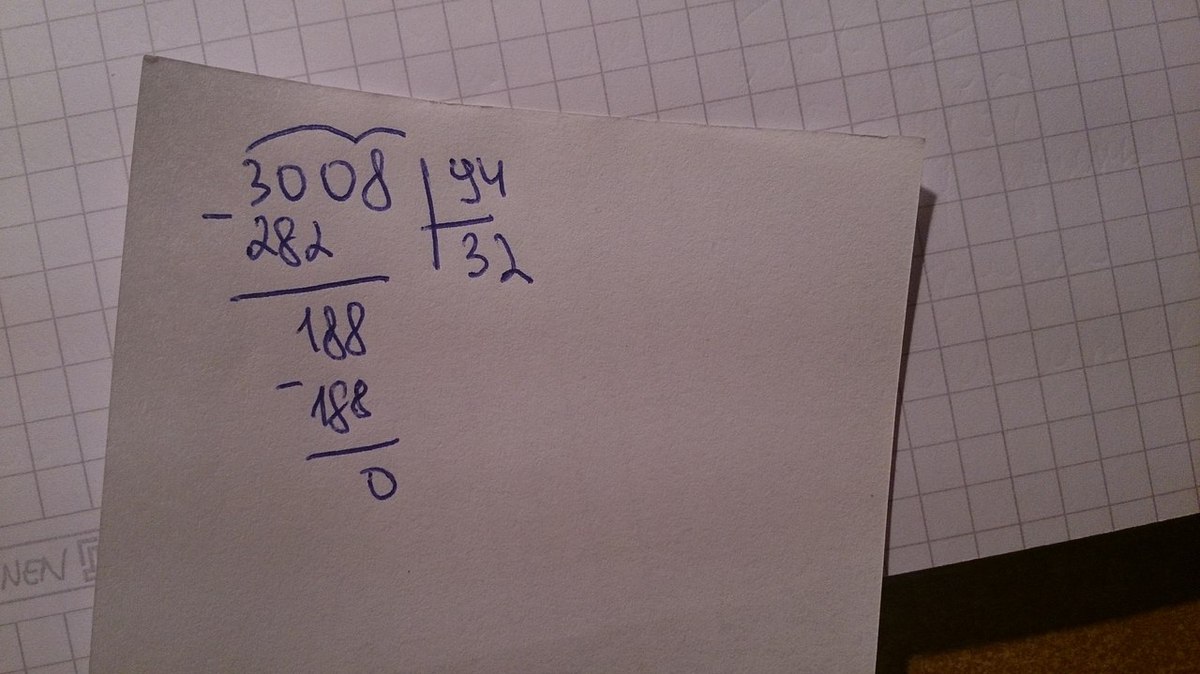 3008 | 94
- 282 | 32
188
- 188
0
NEN